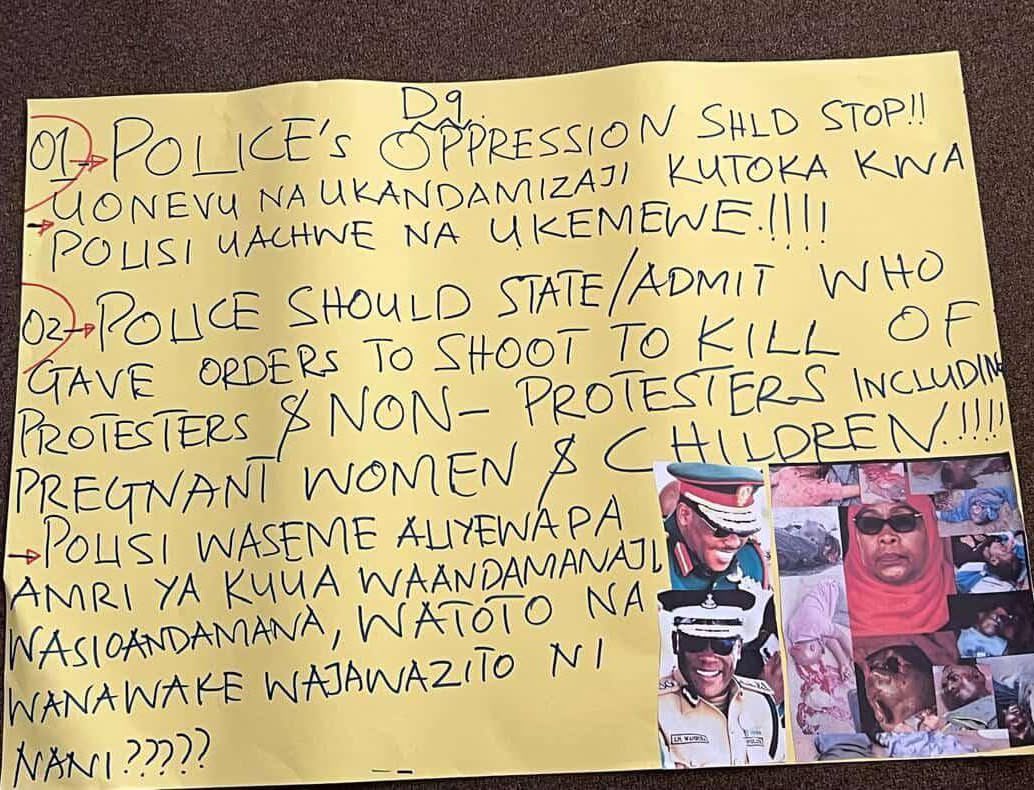 D9.
01 → POLICE'S OPPRESSION SHLD STOP!!
→ UONEVU NA UKANDAMIZAJI KUTOKA KWA
POLISI UACHWE NA UKEMEWE.!!!!
02 → POLICE SHOULD STATE/ADMIT WHO
GAVE ORDERS TO SHOOT TO KILL OF
PROTESTERS & NON- PROTESTERS INCLUDING
PREGNANT WOMEN & CHILDREN.!!!!
→ POLISI WASEME ALIYEWAPA
AMRI YA KUUA WAANDAMANAJI,
WASIOANDAMANA, WATOTO NA
WANAWAKE WAJAWAZITO NI
NANI?????